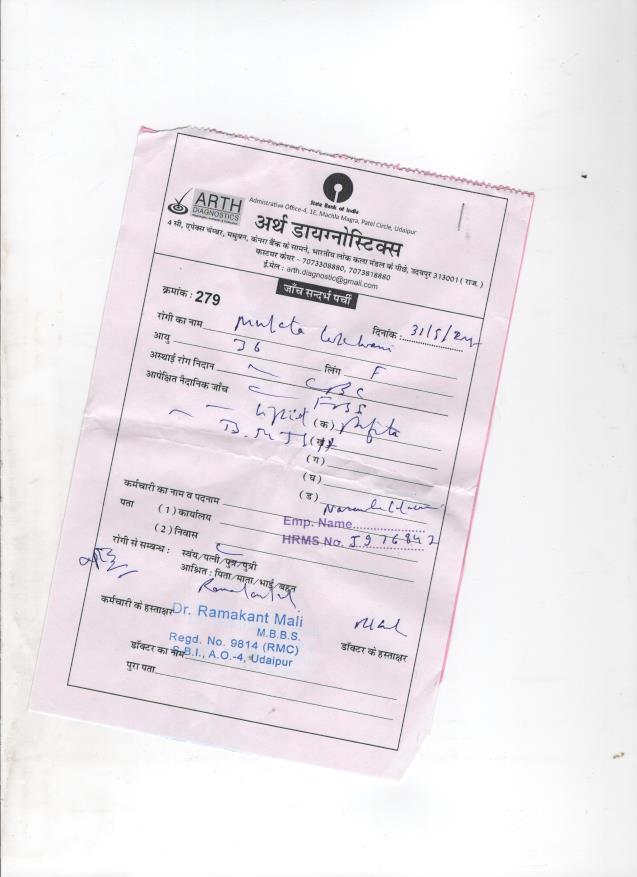 State Bank of India
ARTH
DIAGNOSTICS
Admistrative Office-4, 1E, Machla Magra, Patel Circle, Udaipur
अर्थ डायग्नोस्टिक्स
4 सी, एपेक्स चेम्बर, मधुबन, केनरा बैंक के सामने, भारतीय लोक कला मंडल के पीछे, उदयपुर 313001 ( राज. )
कस्टमर केयर :- 7073308880, 7073818880
ई.मेल : arth.diagnostic@gmail.com
जाँच सन्दर्भ पर्ची
क्रमांक : 279
रोगी का नाम दिनांक : 31/5/24
आयु 36 लिंग F
अस्थाई रोग निदान CBC
आपेक्षित नैदानिक जाँच FBS
Lipid (क) Profile
(ख)
(ग)
(घ)
(ड)
कर्मचारी का नाम व पदनाम
पता (1) कार्यालय Emp. Name
(2) निवास HRMS No.
रोगी से सम्बन्ध : स्वंय/पत्नी/पुत्र/पुत्री
आश्रित : पिता/माता/भाई/बहन
कर्मचारी के हस्ताक्षर डॉक्टर के हस्ताक्षर
Dr. Ramakant Mali
M.B.B.S.
Regd. No. 9814 (RMC)
S.B.I., A.O.-4, Udaipur
डॉक्टर का नाम
पुरा पता